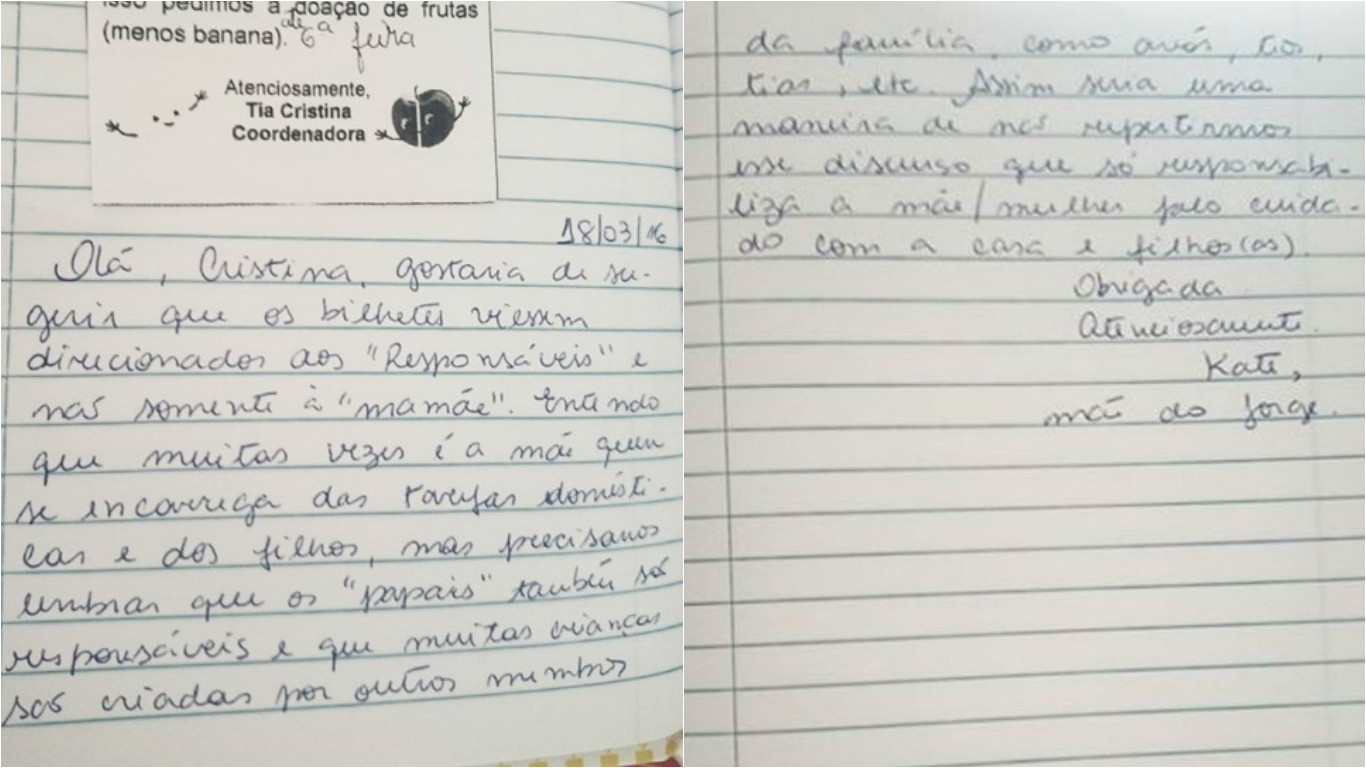 isso pedimos a doação de frutas
(menos banana). até 6ª feira
Atenciosamente,
Tia Cristina
Coordenadora
18/03/16
Olá, Cristina, gostaria de su-
gerir que os bilhetes viessem
direcionados aos "Responsáveis" e
não somente à "mamãe". Entendo
que muitas vezes é a mãe quem
se encarrega das tarefas domésti-
cas e dos filhos, mas precisamos
lembrar que os "papais" também são
responsáveis e que muitas crianças
são criadas por outros membros
da família, como avós, tios,
tias, etc. Assim seria uma
maneira de não repetirmos
esse discurso que só responsabi-
liza a mãe/mulher pelo cuida-
do com a casa e filhos(as).
Obrigada
Atenciosamente.
Kate,
mãe do Jorge.